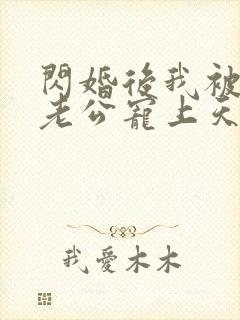 閃婚後我被
老公寵上天
我愛木木